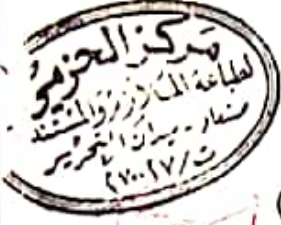 مركز الحزمي
لطباعة الملازم والمستند
صنعاء - ميدان التحرير
ت/